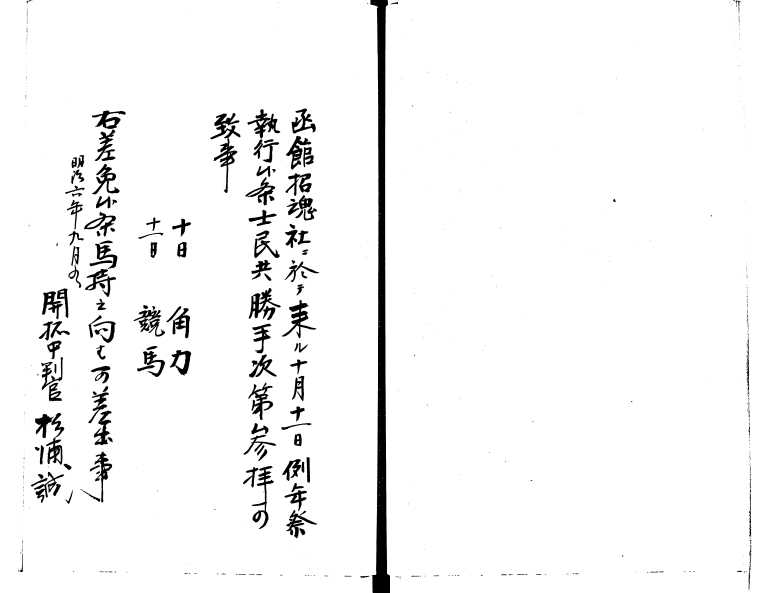 函館招魂社ニ於テ来ル十月十一日例年祭
執行候条士民共勝手次第参拝可
致事
十日 角力
十一日 競馬
右差免候条馬持之向ハ可差出事
明治六年九月
開拓中判官 杉浦誠